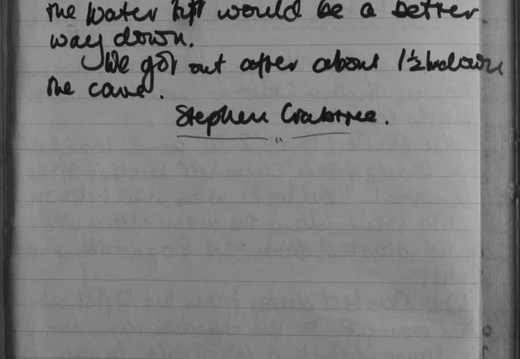 the water left would be a better
way down.
We got out after about 1½ hrs down
the cave.
Stephen Crabtree.